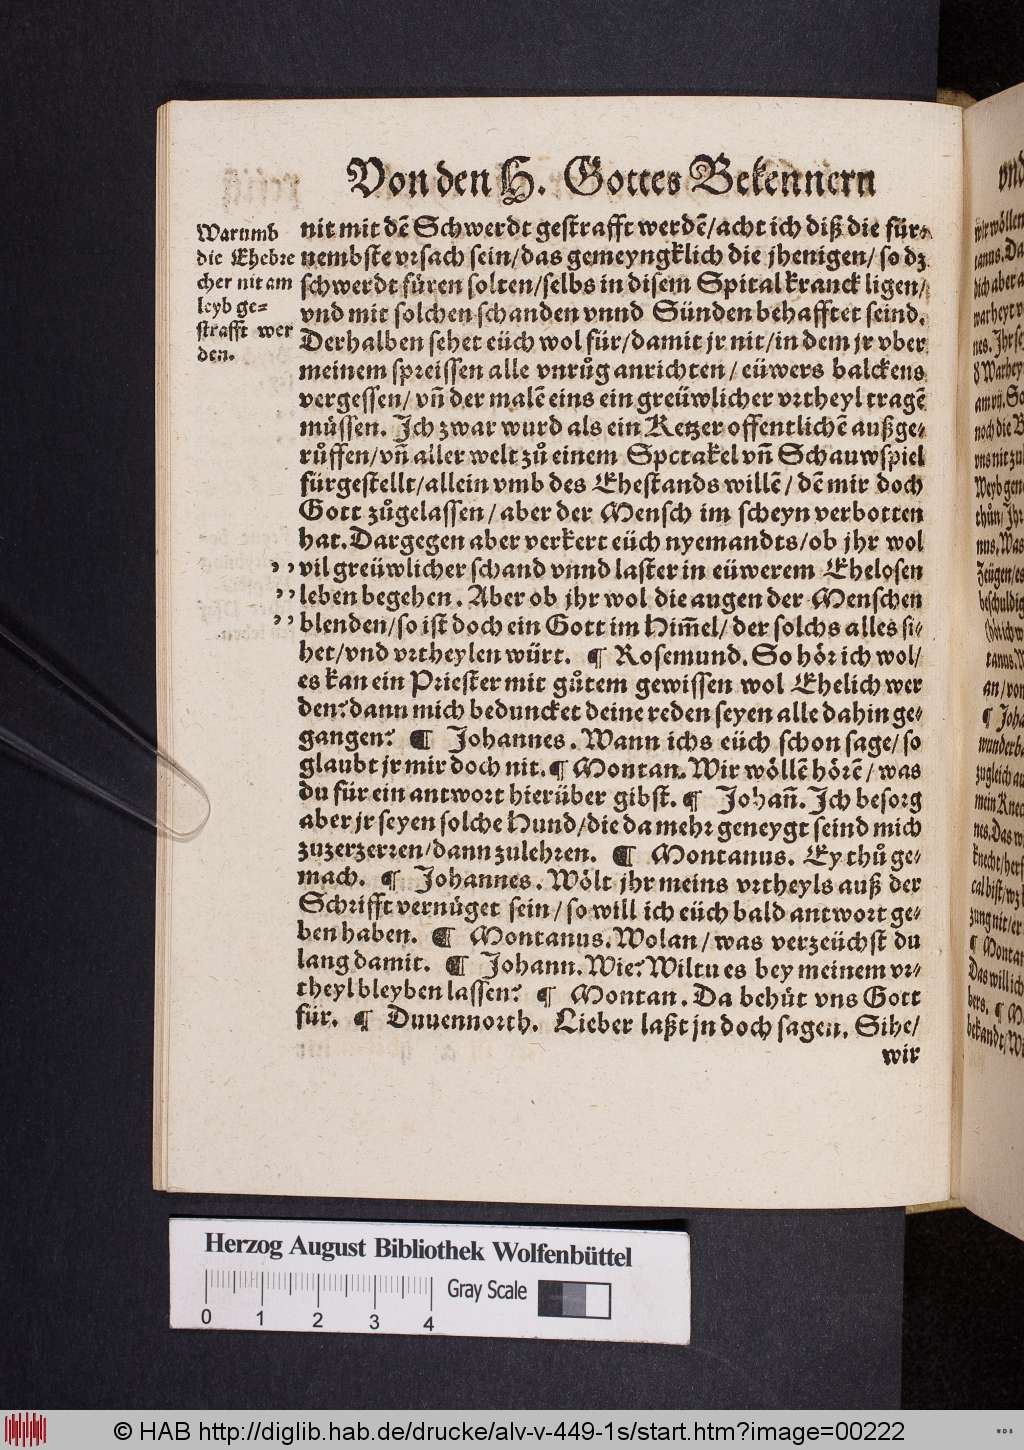 Von den H. Gottes Bekennern
Warumb
die Ehebre
cher nit am
leyb ge-
strafft wer
den.
nit mit dẽ Schwerdt gestrafft werdẽ/acht ich diß die für-
nembste vrsach sein/das gemeyngklich die jhenigen/so dz
schwerdt füren solten/selbs in disem Spital kranck ligen/
vnd mit solchen schanden vnnd Sünden behafftet seind.
Derhalben sehet eüch wol für/damit jr nit/in dem jr vber
meinem spreissen alle vnrůg anrichten/eüwers balckens
vergessen/vñ der malẽ eins ein greüwlicher vrtheyl tragẽ
müssen. Ich zwar wurd als ein Ketzer offentlichẽ außge-
růffen/vñ aller welt zů einem Spctakel vñ Schauwspiel
fürgestellt/allein vmb des Ehestands willẽ/dẽ mir doch
Gott zůgelassen/aber der Mensch im scheyn verbotten
hat. Dargegen aber verkert eüch nyemandts/ob jhr wol
,, vil greüwlicher schand vnnd laster in eüwerem Ehelosen
,, leben begehen. Aber ob jhr wol die augen der Menschen
,, blenden/so ist doch ein Gott im Him̃el/der solchs alles si-
het/vnd vrtheylen würt. ¶ Rosemund. So hör ich wol/
es kan ein Priester mit gůtem gewissen wol Ehelich wer
den? dann mich beduncket deine reden seyen alle dahin ge-
gangen? ¶ Johannes. Wann ichs eüch schon sage/so
glaubt jr mir doch nit. ¶ Montan. Wir wöllẽ hörẽ/was
du für ein antwort hierüber gibst. ¶ Johañ. Ich besorg
aber jr seyen solche Hund/die da mehr geneygt seind mich
zuzerzerren/dann zulehren. ¶ Montanus. Ey thů ge-
mach. ¶ Johannes. Wölt jhr meins vrtheyls auß der
Schrifft vernüget sein/so will ich eüch bald antwort ge-
ben haben. ¶ Montanus. Wolan/was verzeüchst du
lang damit. ¶ Johann. Wie? Wiltu es bey meinem vr-
theyl bleyben lassen? ¶ Montan. Da behüt vns Gott
für. ¶ Duuennorth. Lieber laßt jn doch sagen. Sihe/
wir
Herzog August Bibliothek Wolfenbüttel
Gray Scale
0 1 2 3 4
© HAB http://diglib.hab.de/drucke/alv-v-449-1s/start.htm?image=00222